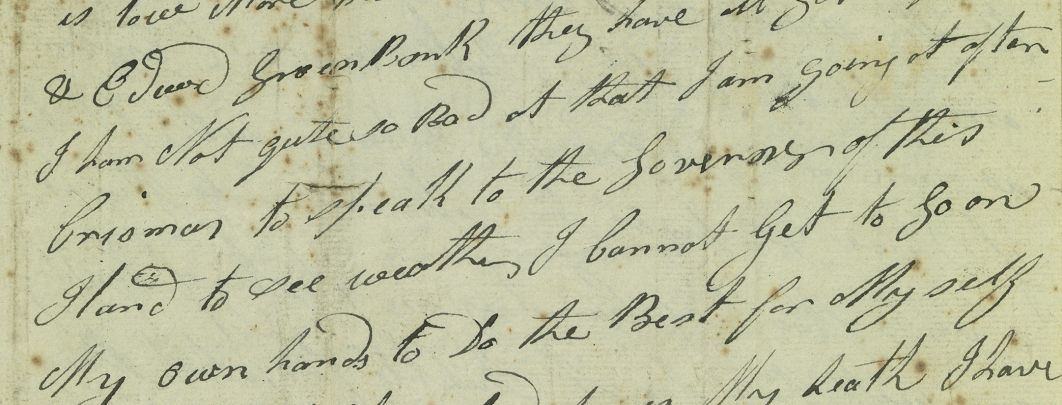 is
& Edward GreenBank they have
I ham Not qute so Bad at that I am going at often
Crismas to speak to the Governer of this
Iland to see weather I Cannot Get to Go on
My own hands to Do the Best for My self
My heath I have